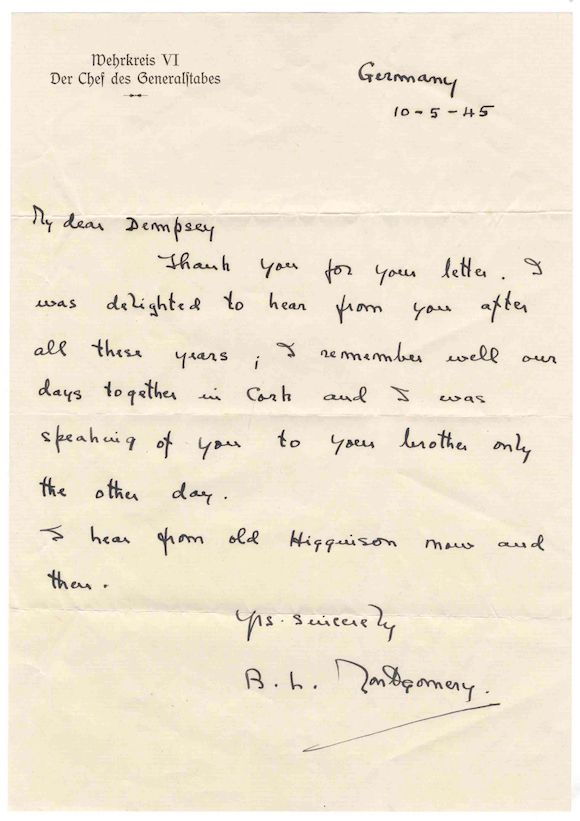 Wehrkreis VI
Der Chef des Generalstabes
Germany
10-5-45
My dear Dempsey
Thank you for your letter. I
was delighted to hear from you after
all these years; I remember well our
days together in Cork and I was
speaking of you to your brother only
the other day.
I hear from old Higginson now and
then.
Yrs. sincerely
B. L. Montgomery.